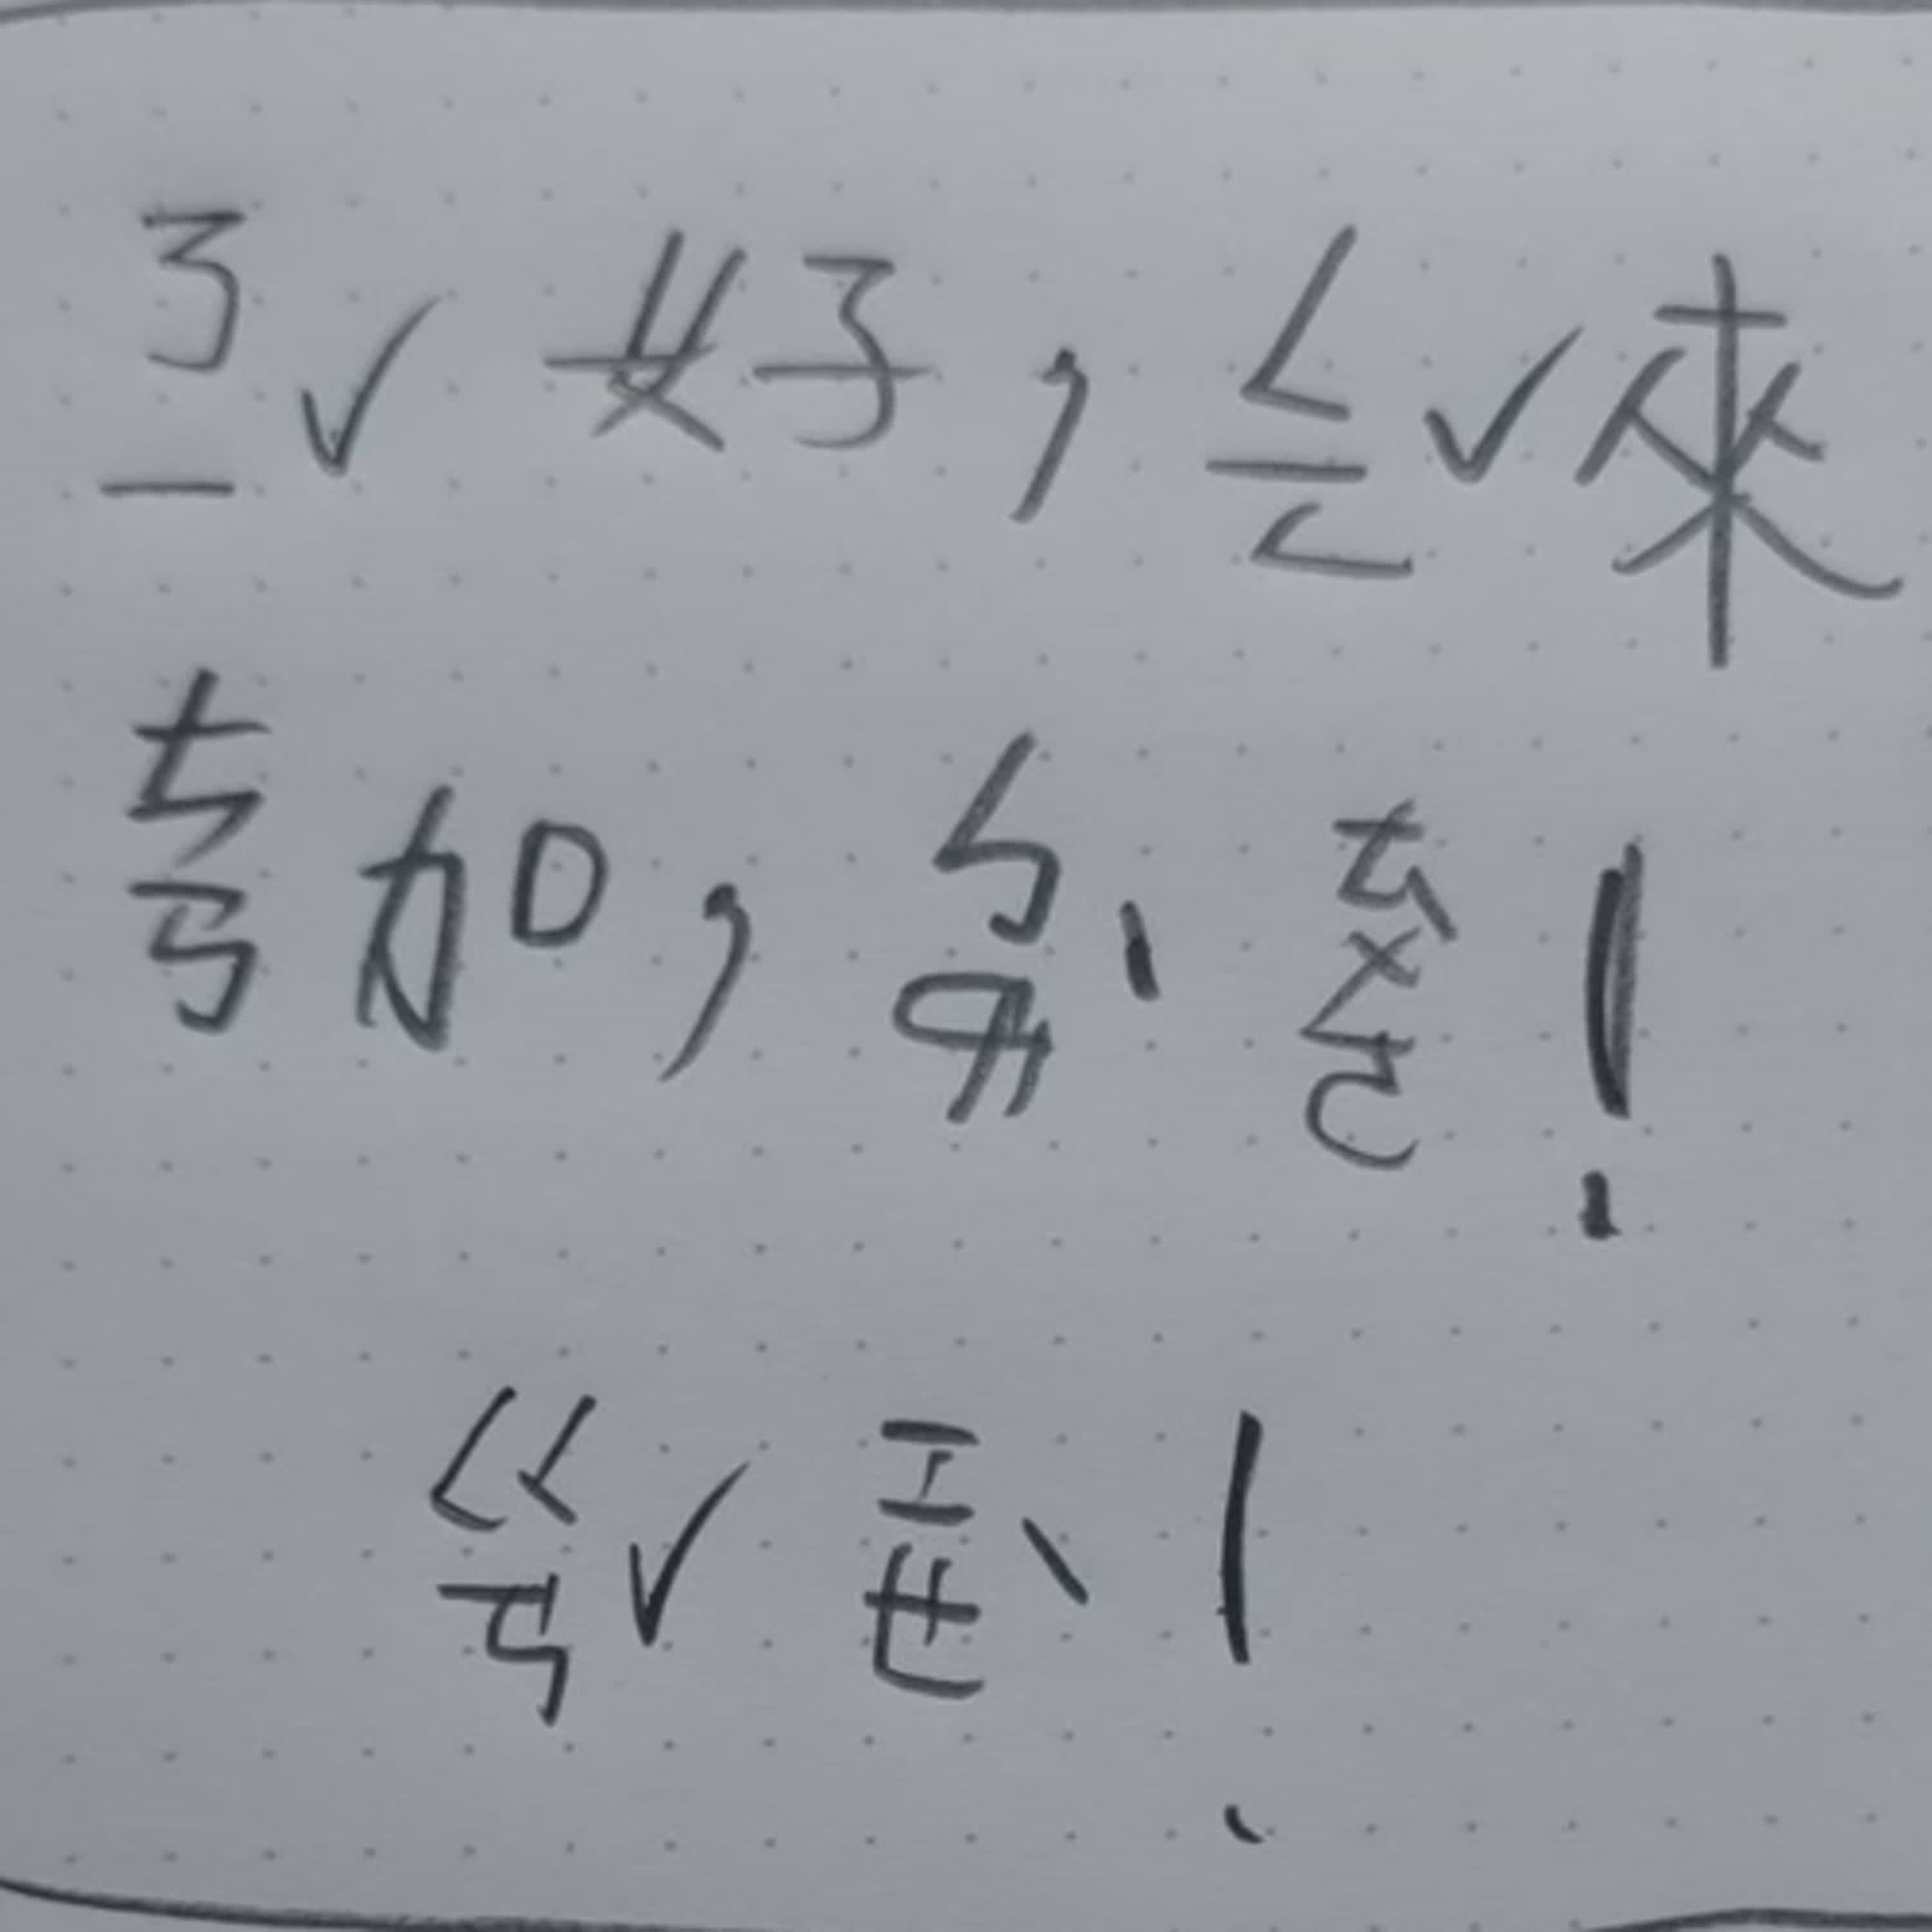 ㄋㄧˇ好,ㄑㄧㄥˇ來
ㄘㄢ加,ㄅㄞˋㄊㄨㄛ!
ㄍㄢˇㄒㄧㄝˋ!